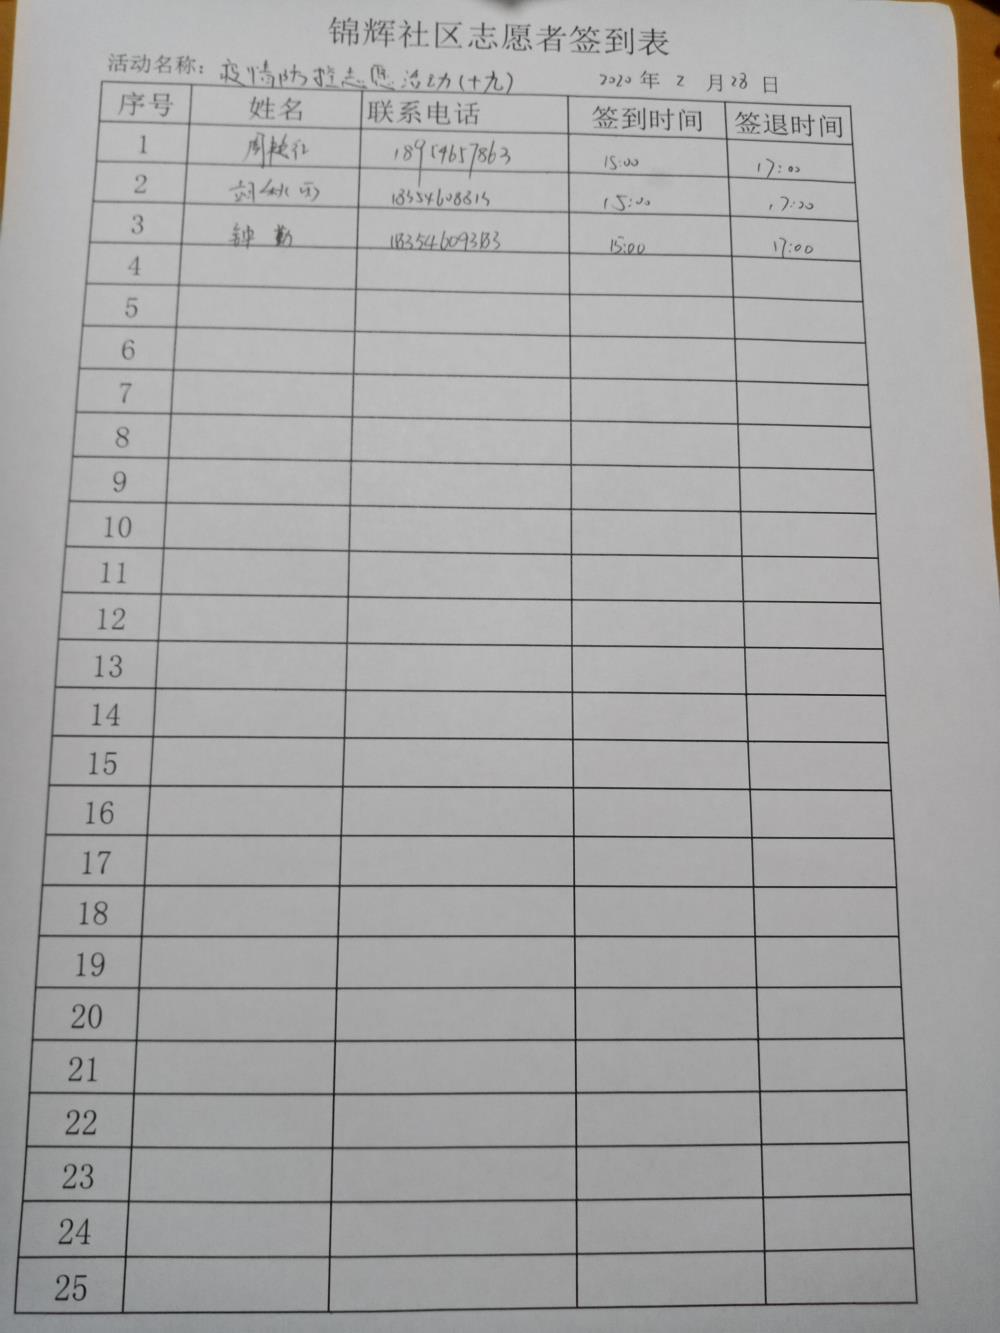 锦辉社区志愿者签到表
活动名称：疫情防控志愿活动(十九) 2020年2月28日
序号 姓名 联系电话 签到时间 签退时间
1 18954657863 15:00 17:00
2 15:00 17:00
3 钟勤 18354609383 15:00 17:00
4
5
6
7
8
9
10
11
12
13
14
15
16
17
18
19
20
21
22
23
24
25